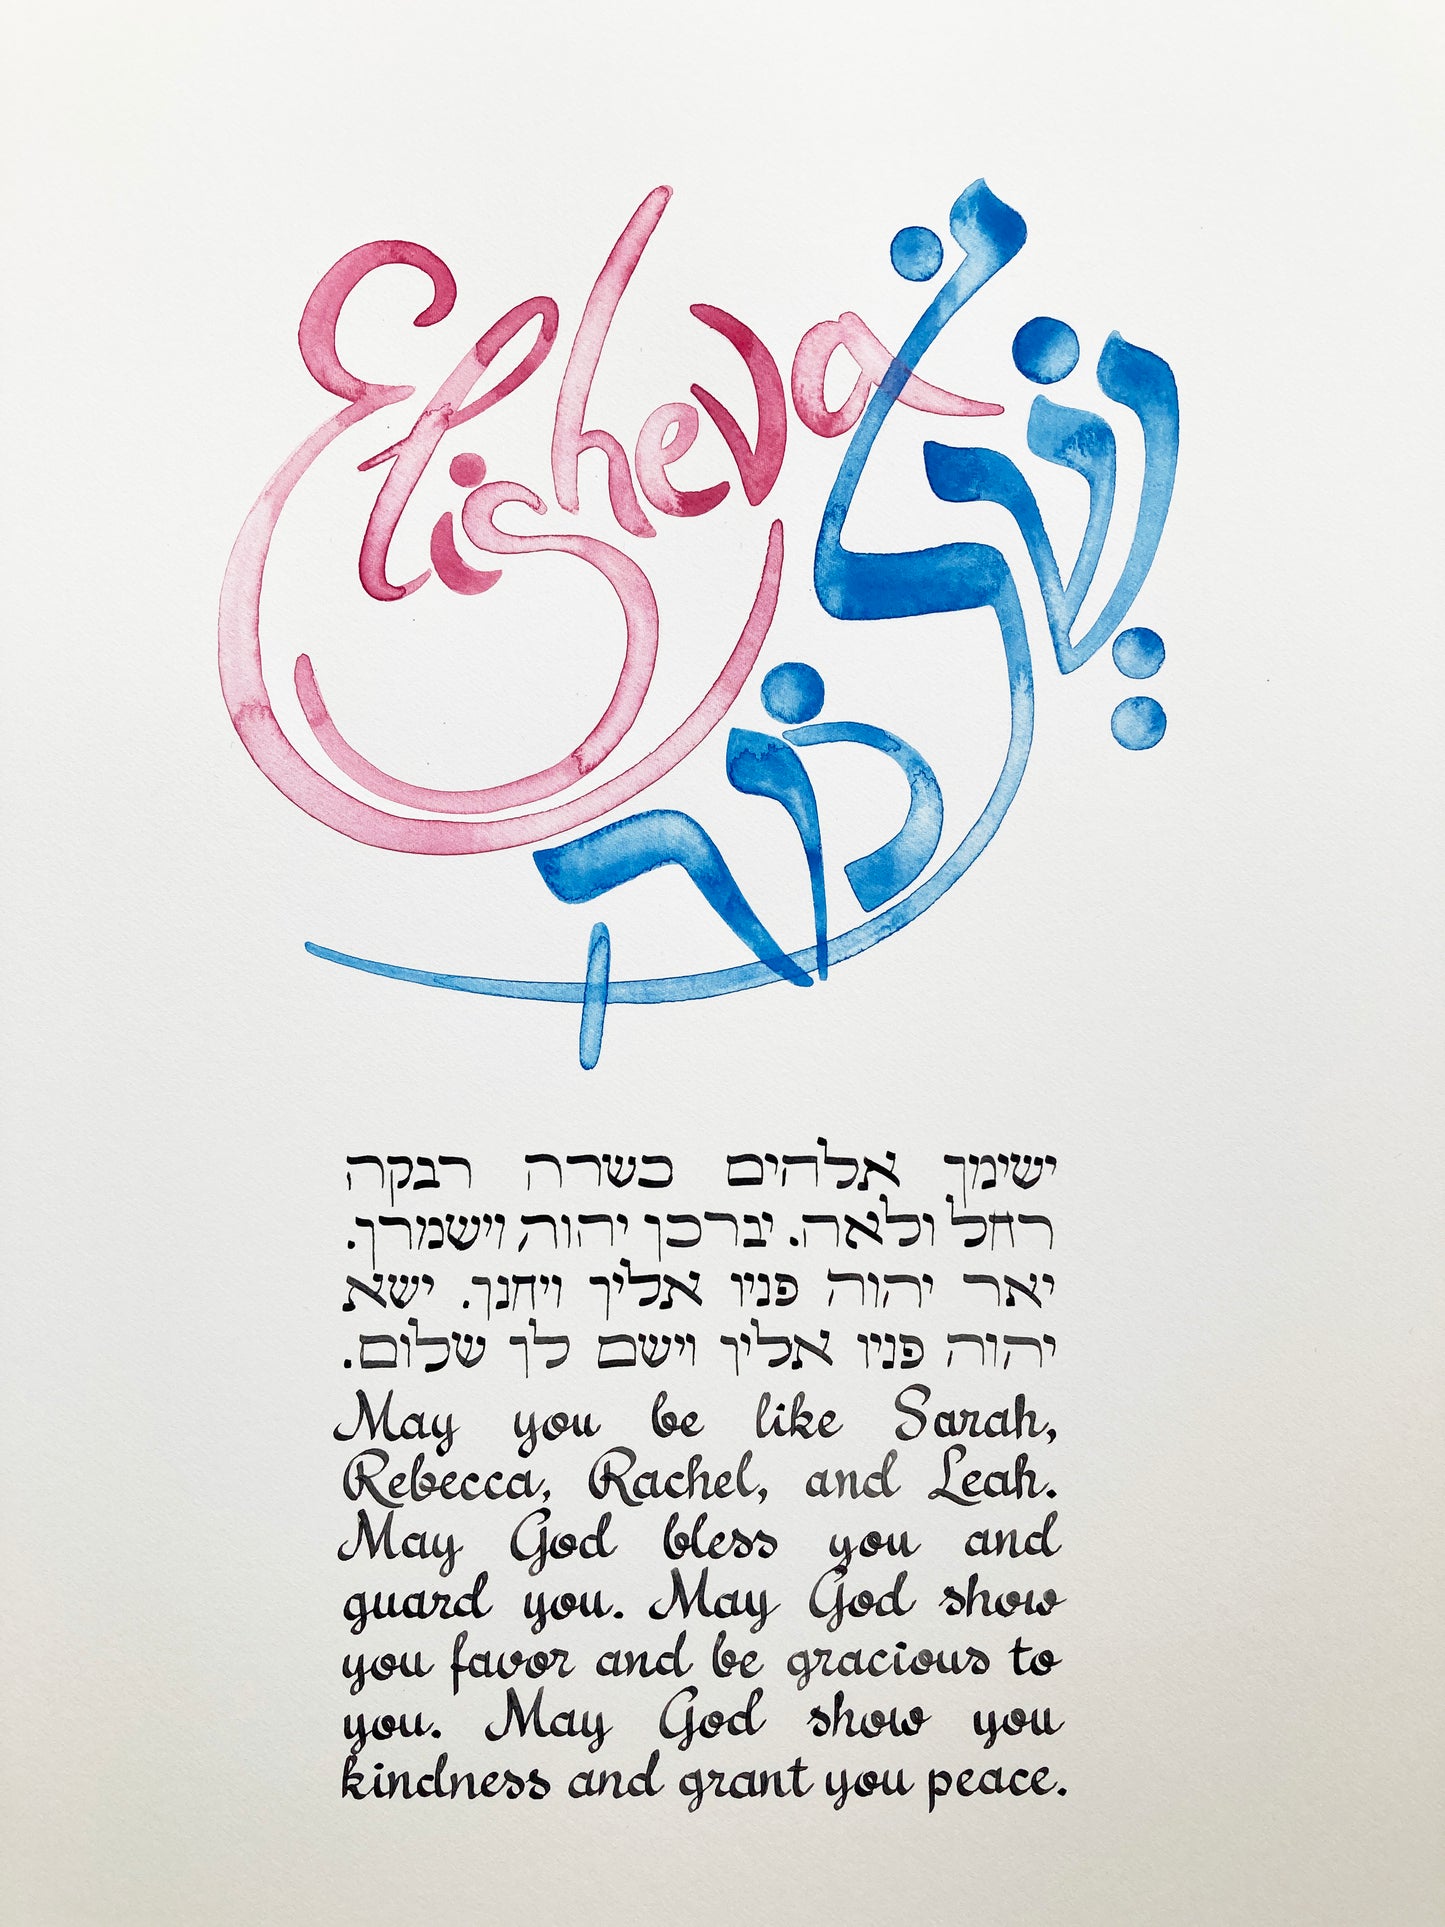 Elisheva
ישימך אלהים כשרה רבקה
רחל ולאה. יברכך יהוה וישמרך.
יאר יהוה פניו אליך ויחנך. ישא
יהוה פניו אליך וישם לך שלום.
May you be like Sarah,
Rebecca, Rachel, and Leah.
May God bless you and
guard you. May God show
you favor and be gracious to
you. May God show you
kindness and grant you peace.